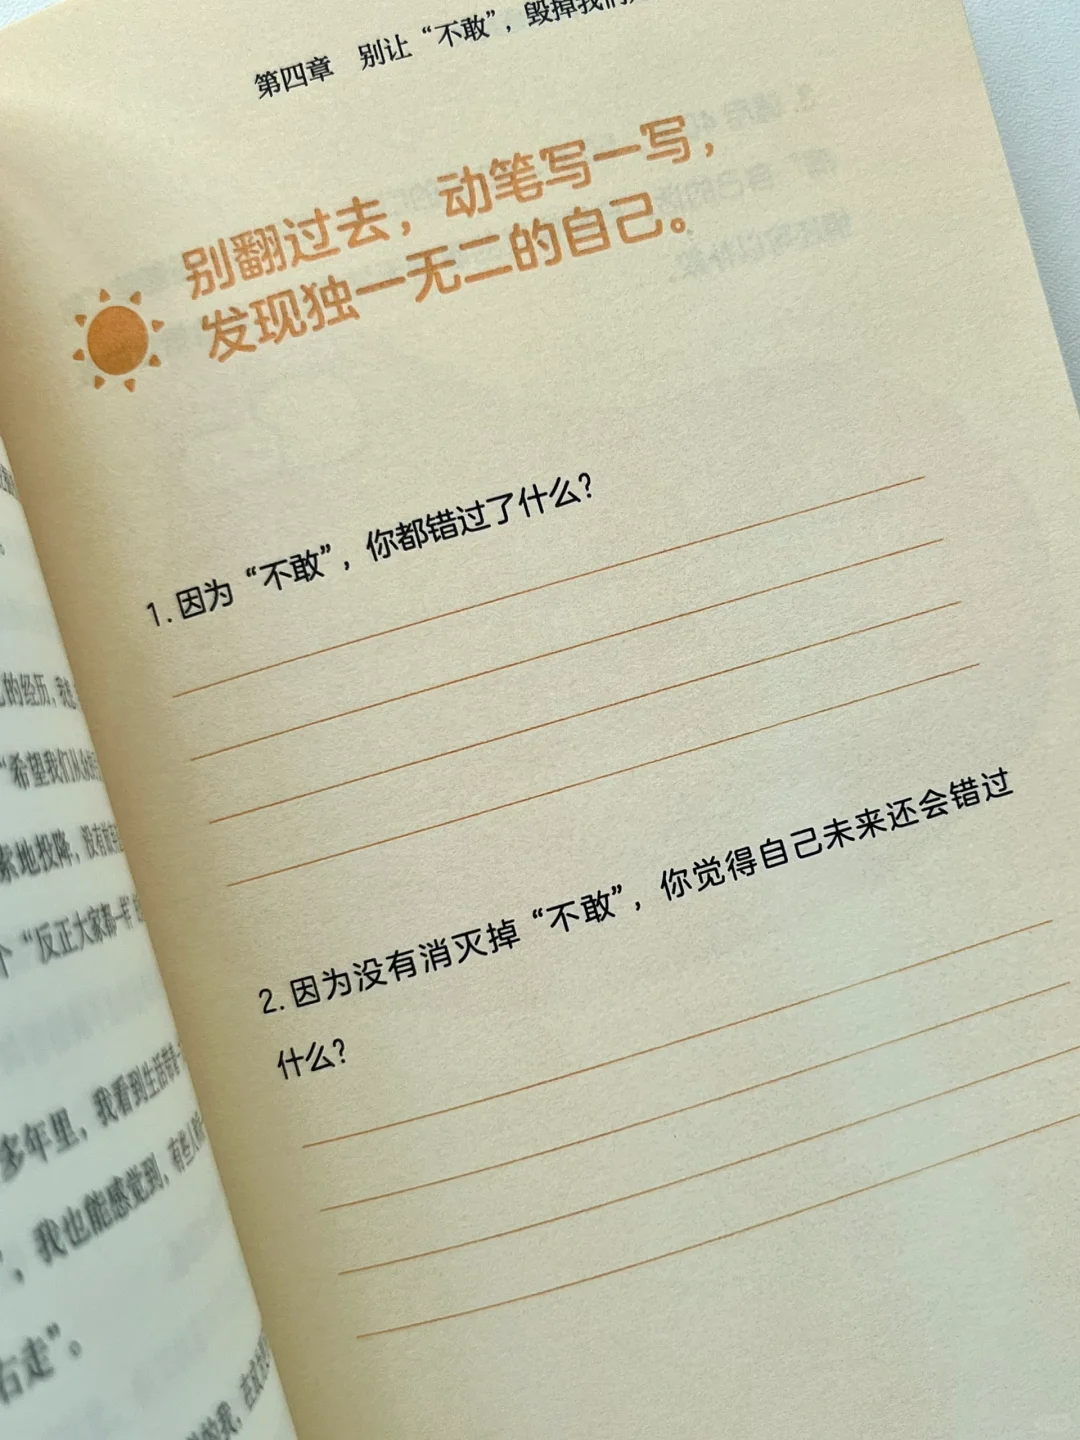 第四章 别让“不敢”，毁掉我们
别翻过去，动笔写一写，
发现独一无二的自己。
1. 因为“不敢”，你都错过了什么？
2. 因为没有消灭掉“不敢”，你觉得自己未来还会错过
什么？
的经历，我想
“希望我们从
地投降，没有
“反正大家都一样
多年里，我看到生活
，我也能感觉到，有些人
右走”。
的我，在